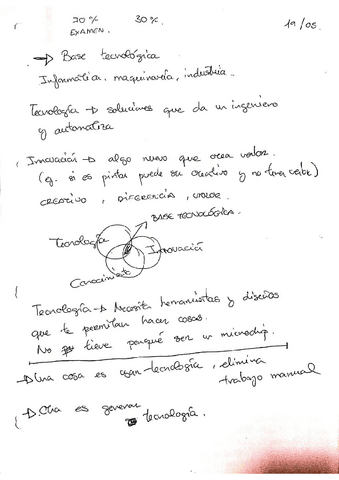 70% 30%. 19/05.
EXAMEN.
→ Base tecnológica
Informática, maquinaria, industria.
Tecnología → soluciones que da un ingeniero
y automatiza
Innovación → algo nuevo que crea valor.
(ej. si es pintar puede ser creativo y no tener valor)
CREATIVO, DIFERENCIA, VALOR.
BASE TECNOLÓGICA.
Tecnología Innovación
Conocimiento
Tecnología → Necesita herramientas y diseños
que te permitan hacer cosas.
No tiene porqué ser un microchip.
→ Una cosa es usar tecnología, elimina
trabajo manual
→ Otra es generar
tecnología.